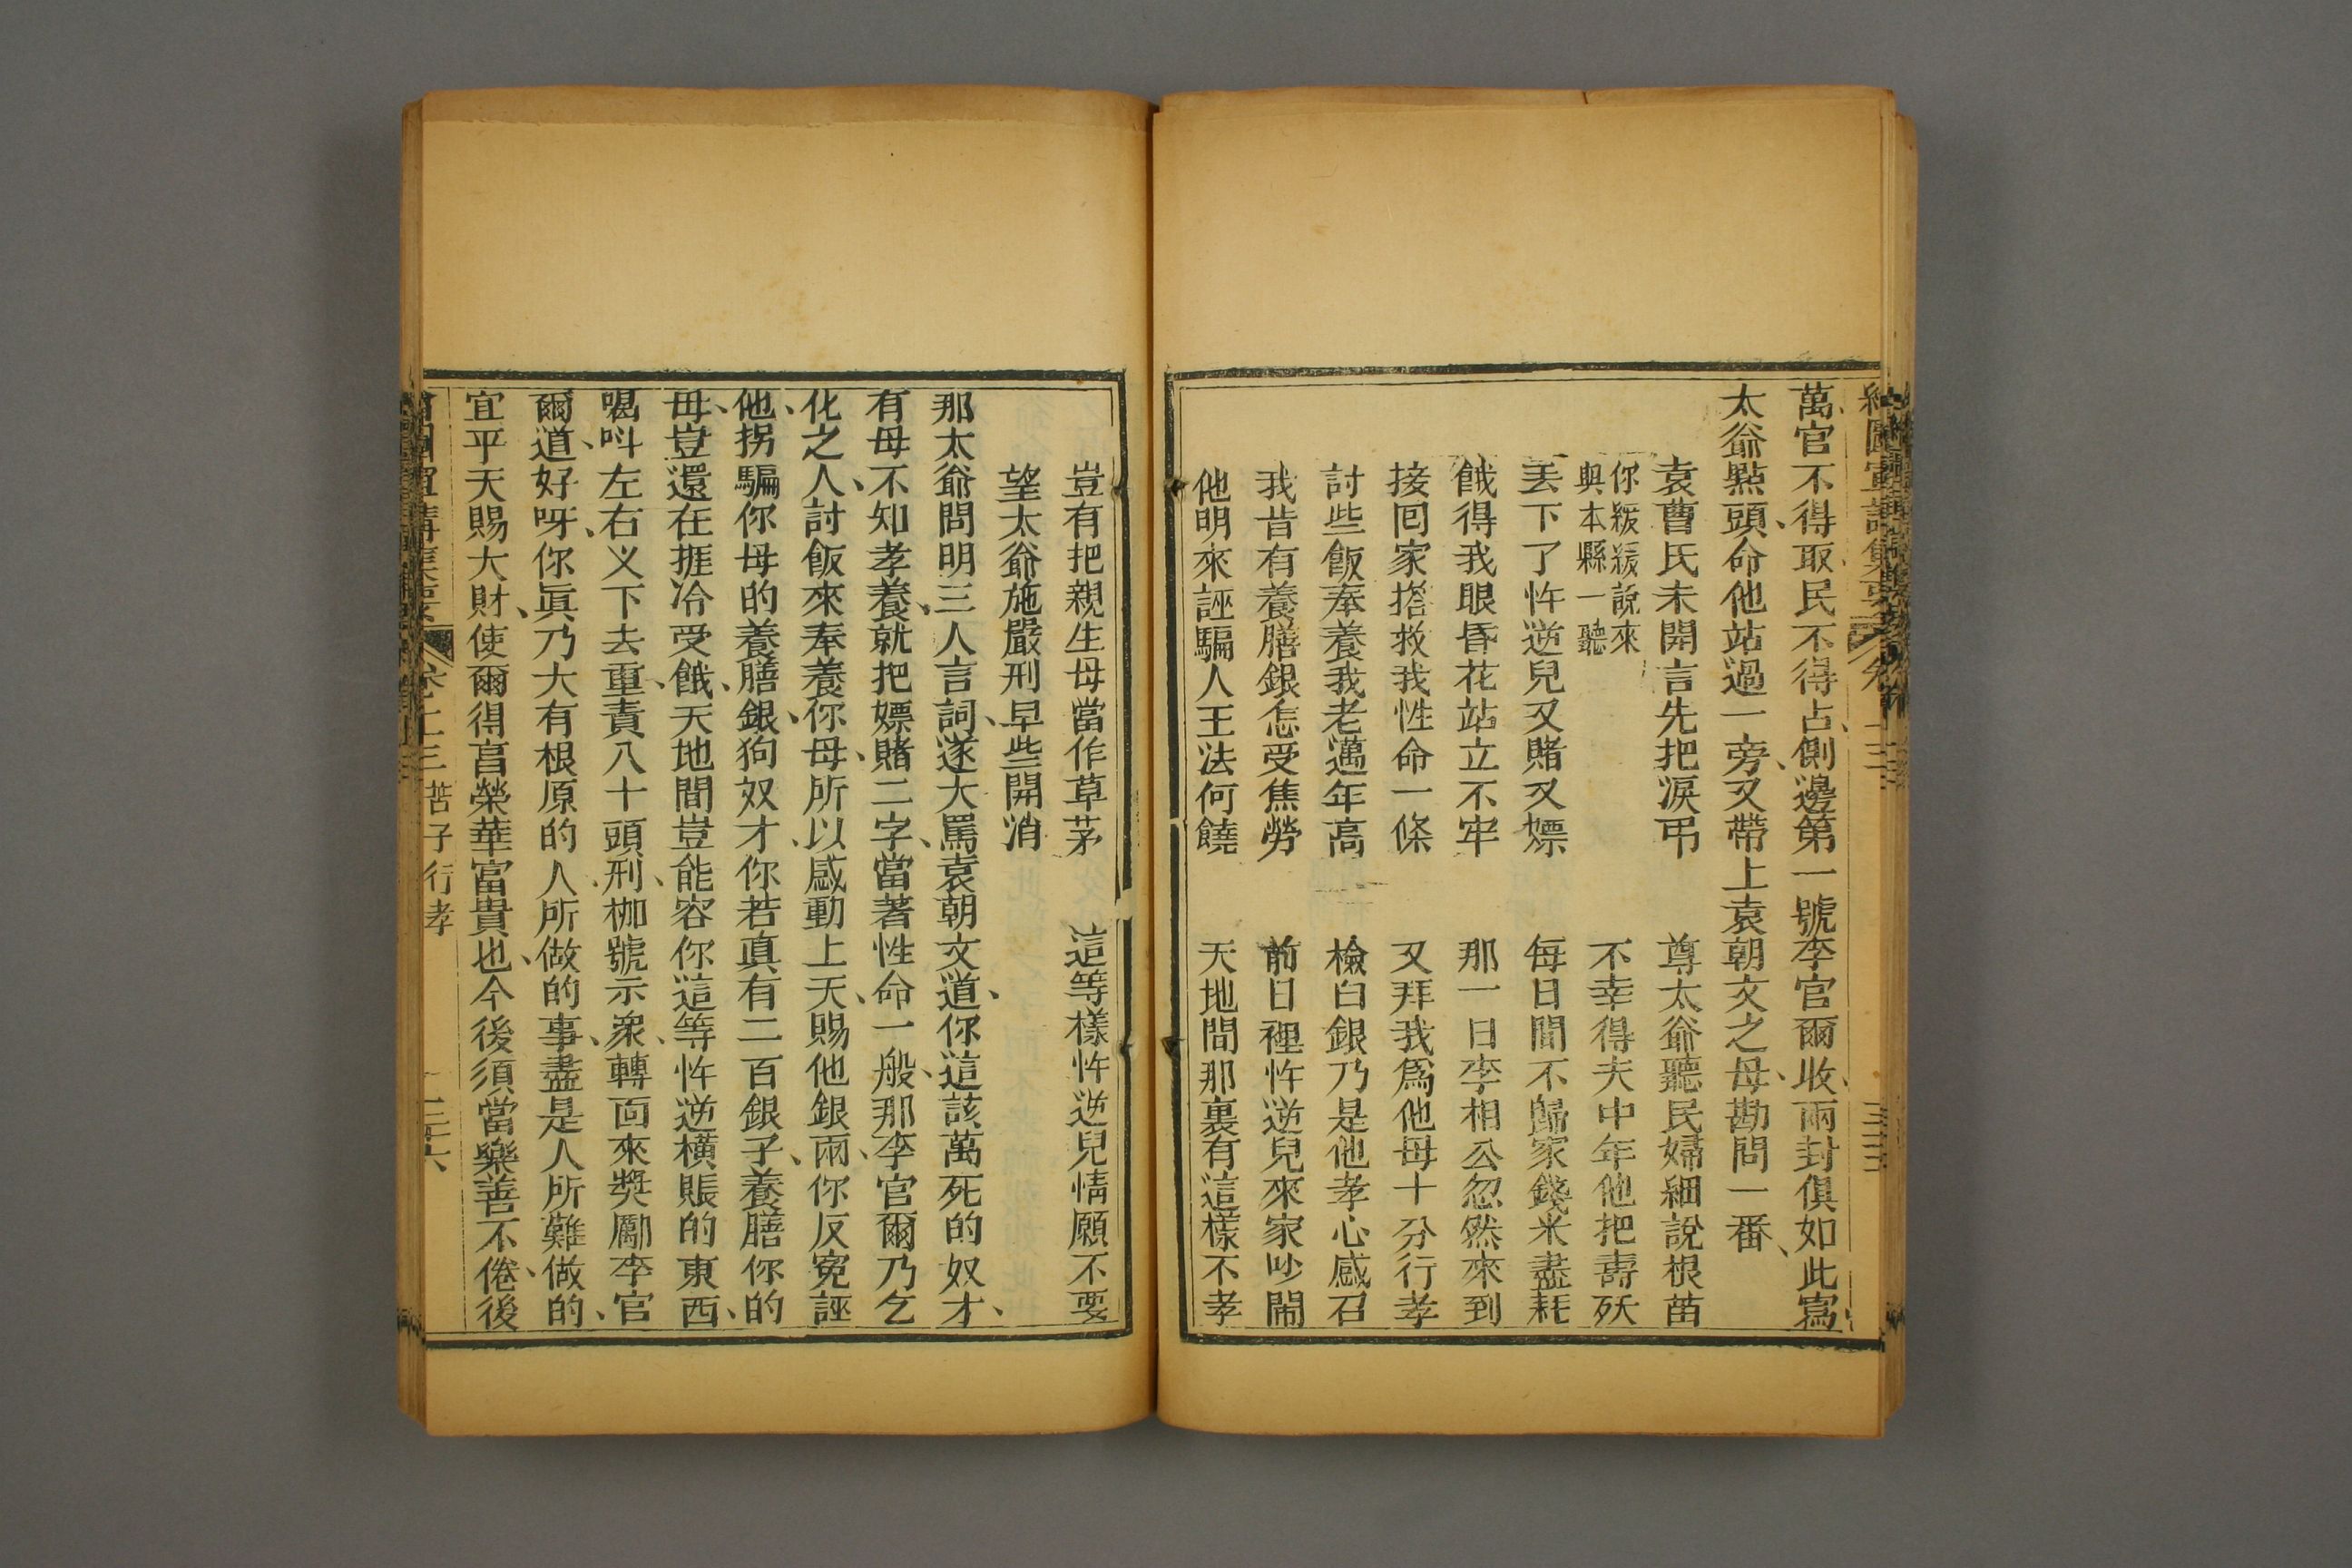 萬官不得取民不得占側邊第一號李官爾收兩封俱如此寫
太爺點頭命他站過一旁又帶上袁朝文之母勘問一番
袁曹氏未開言先把淚弔　尊太爺聽民婦細說根苗
你緩緩說來
與本縣一聽
不幸得夫中年他把壽殀
丟下了忤逆兒又賭又嫖　每日間不歸家錢米盡耗
餓得我眼昏花站立不牢　那一日李相公忽然來到
接回家搭救我性命一條　又拜我爲他母十分行孝
討些飯奉養我老邁年高　檢白銀乃是他孝心感召
我昔有養膳銀怎受焦勞　前日裡忤逆兒來家吵鬧
他明來誣騙人王法何饒　天地間那裏有這樣不孝
豈有把親生母當作草茅　這等樣忤逆兒情願不要
望太爺施嚴刑早些開消
那太爺問明三人言詞、遂大罵袁朝文道、你這該萬死的奴才、
有母不知孝養、就把嫖賭二字、當著性命一般、那李官爾乃乞
化之人、討飯來奉養你母、所以感動上天、賜他銀兩、你反冤誣
他、拐騙你母的養膳銀、狗奴才、你若真有二百銀子、養膳你的
母、豈還在捱冷受餓、天地間豈能容你這等忤逆橫賬的東西、
喝呌左右义下去、重責八十頭刑、枷號示衆、轉面來獎勵李官
爾道、好呀、你眞乃大有根原的人、所做的事、盡是人所難做的、
宜乎天賜大財、使爾得享榮華富貴也、今後須當樂善不倦、後
卷十三 苦子行孝